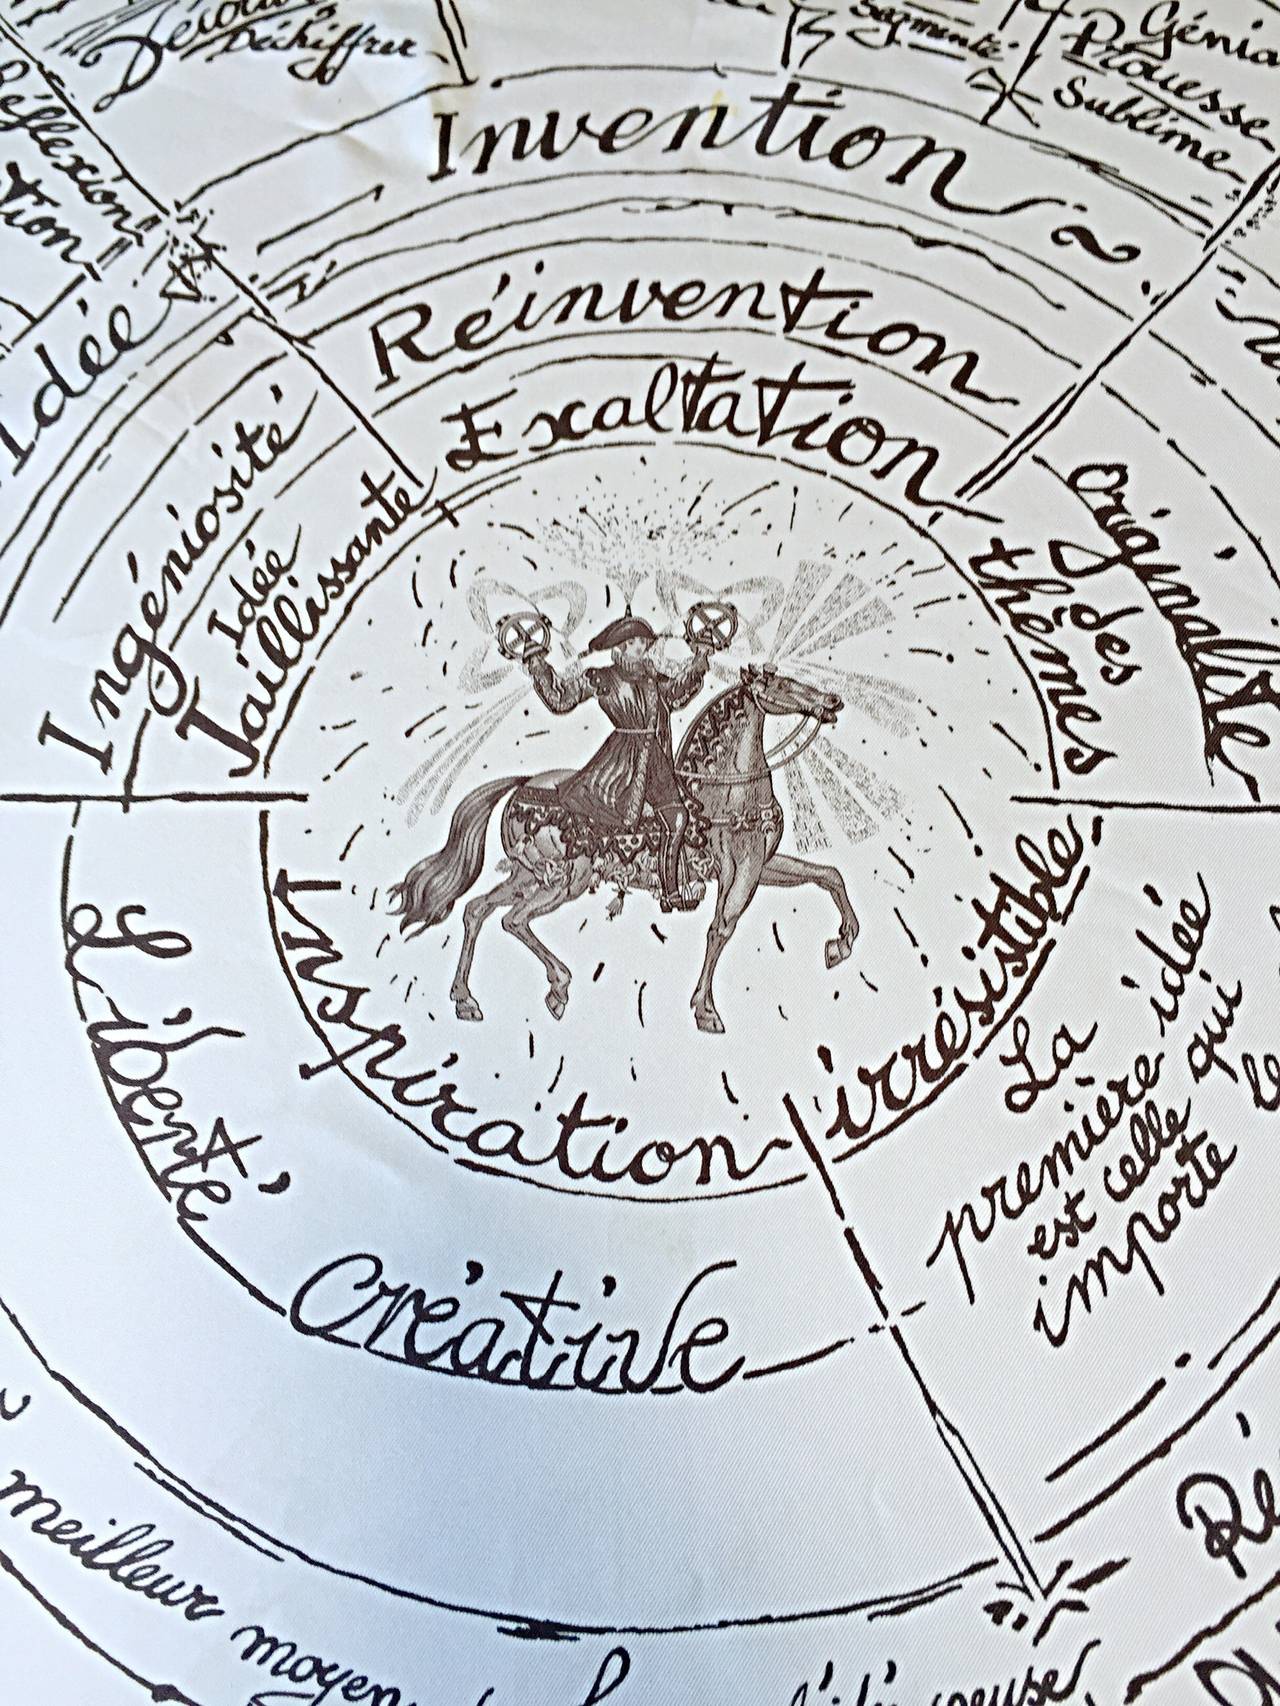 Déchiffrer
Segmenté
Génia
Prouesse
Sublime
Réflexion
tion
Invention
Idée
Réinvention
Exaltation
Ingéniosité
Idée
Jaillissante
originalité
des
thèmes
Inspiration irrésistible
Liberté Créative
La
première idée
est celle qui
importe le
Ré
meilleur moyen